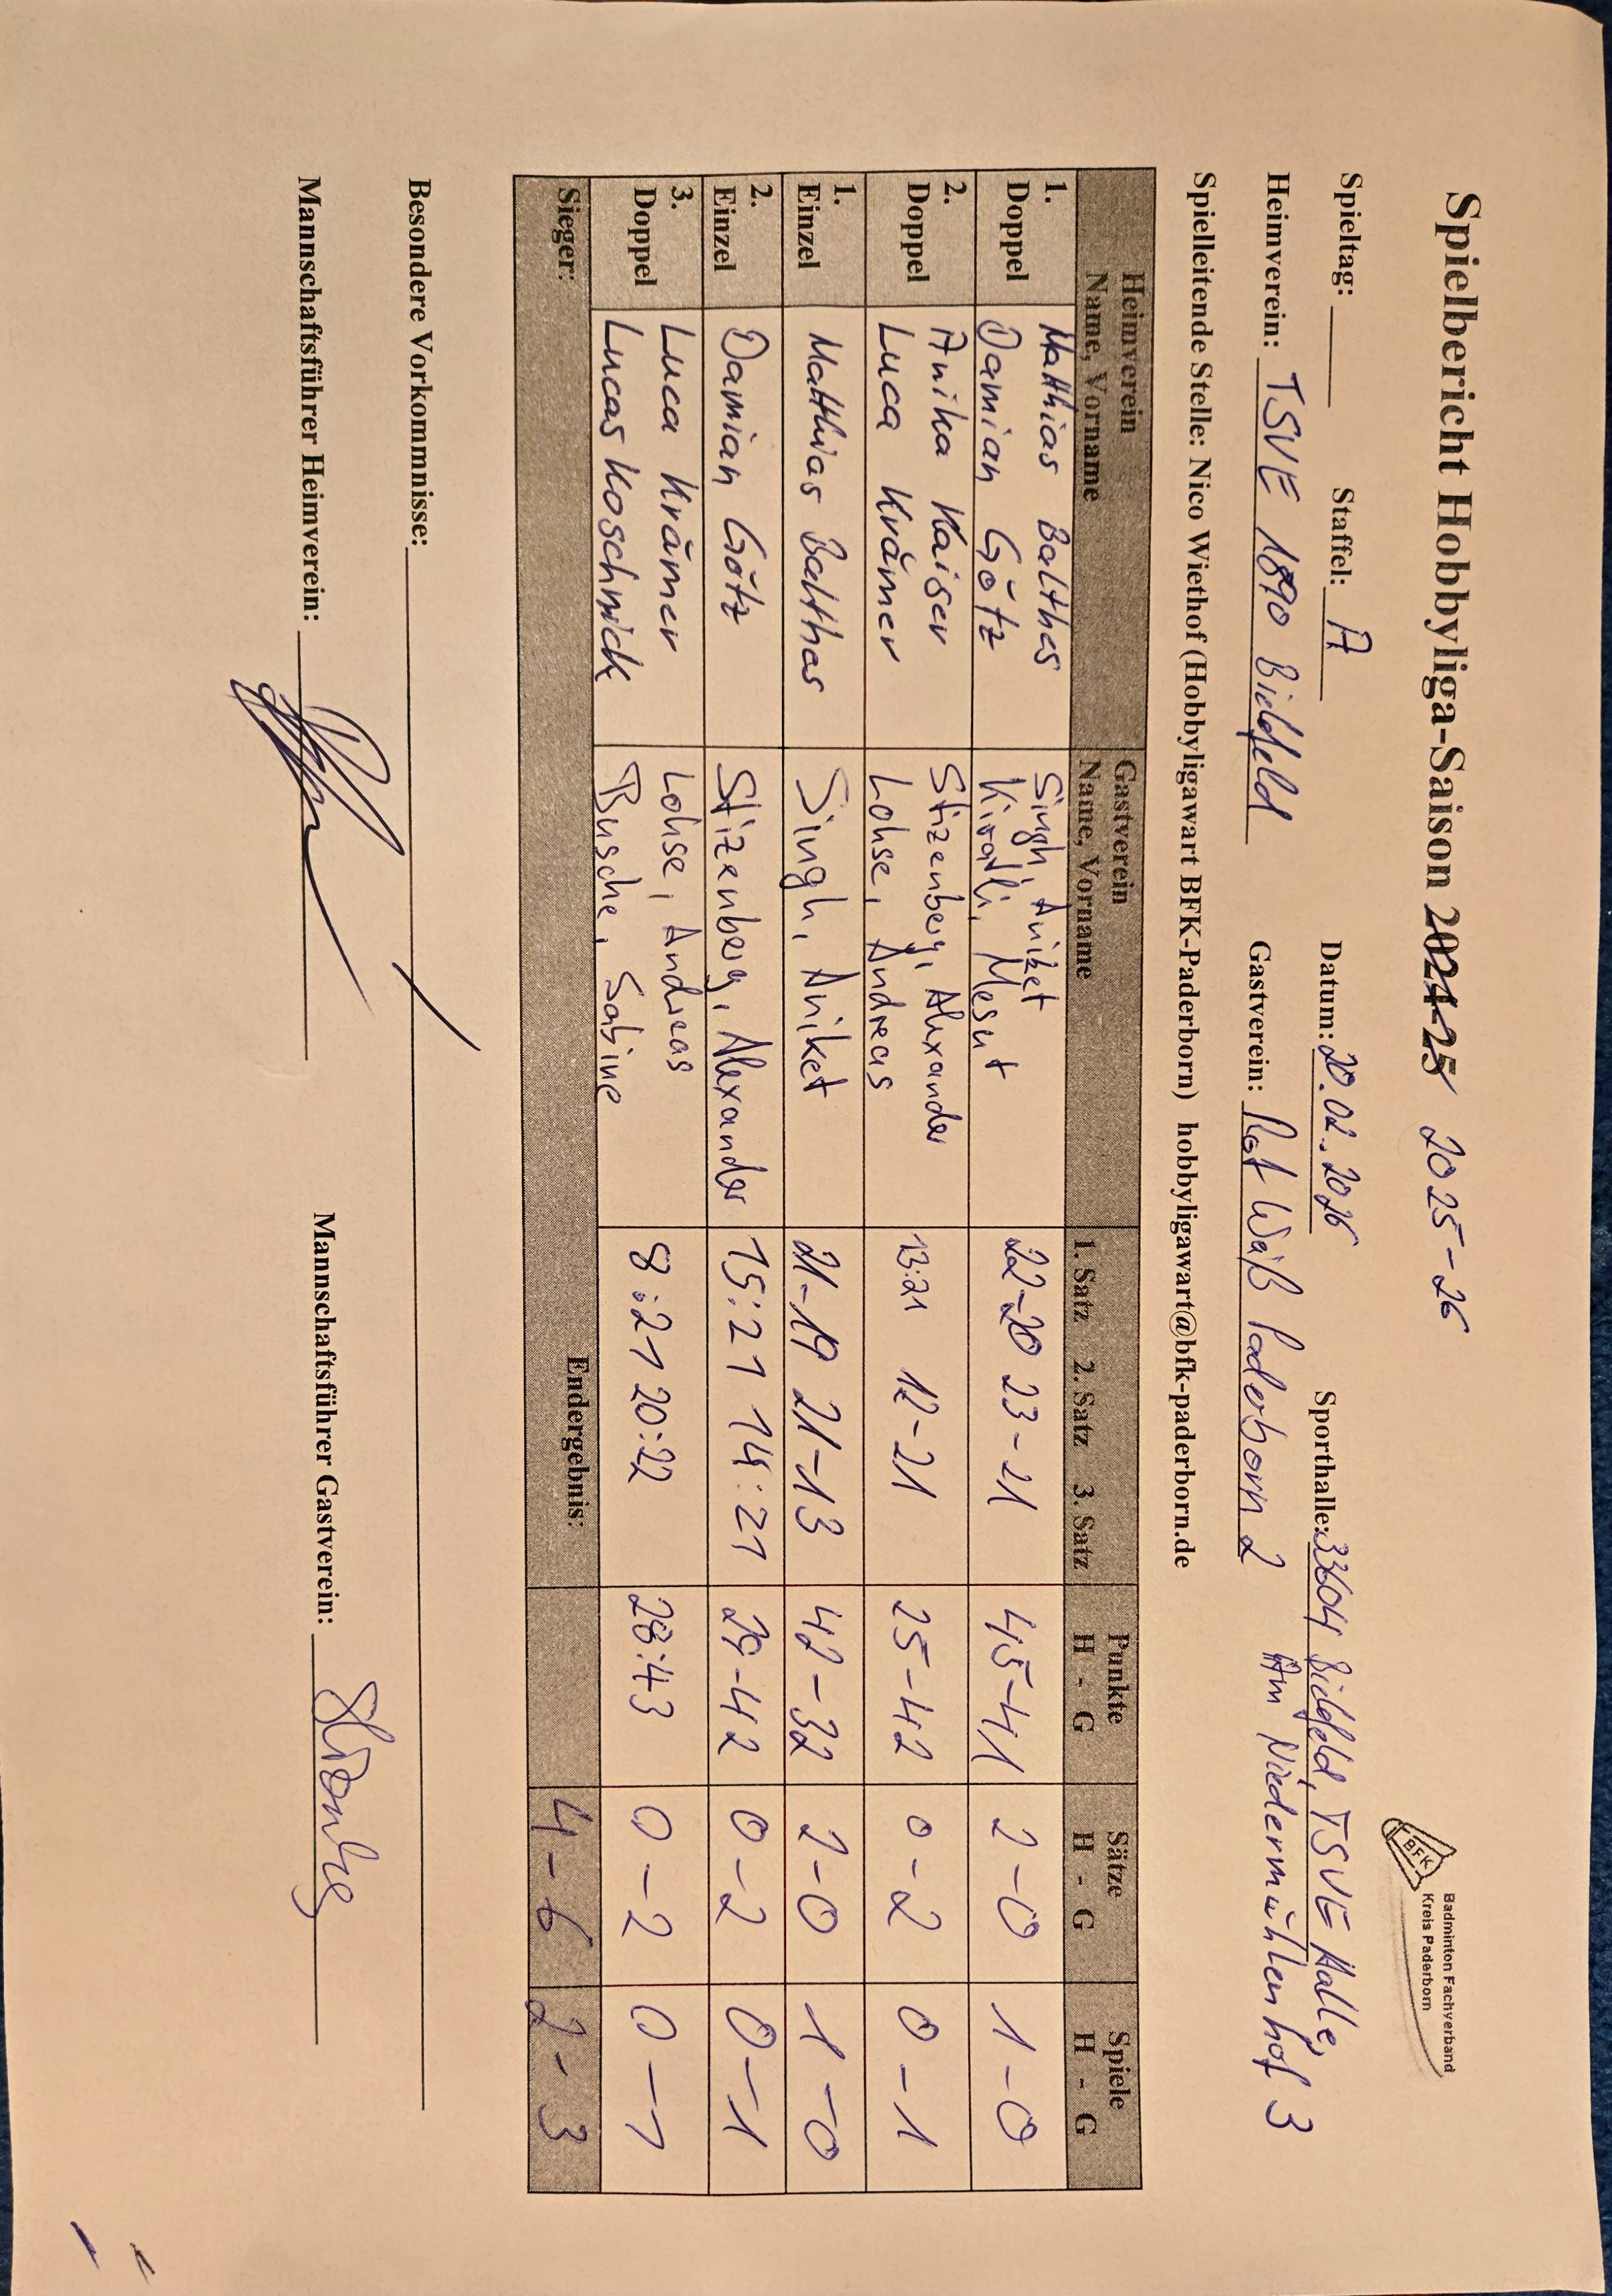 Spielbericht Hobbyliga-Saison 2024-25 2025-26
BFK
Badminton Fachverband
Kreis Paderborn
Spieltag: Staffel: A Datum: 20.02.2026 Sporthalle: 33604 Bielefeld, TSVE Halle,
Am Niedermühlenhof 3
Heimverein: TSVE 1890 Bielefeld Gastverein: Rot Weiß Paderborn 2
Spielleitende Stelle: Nico Wiethof (Hobbyligawart BFK-Paderborn) hobbyligawart@bfk-paderborn.de
Heimverein Gastverein Punkte Sätze Spiele
Name, Vorname Name, Vorname 1. Satz 2. Satz 3. Satz H - G H - G H - G
1. Matthias Balthes Singh, Aniket
Doppel Damian Götz Kiralli, Mesut 22-20 23-21 45-41 2-0 1-0
2. Anika Kaiser Stizenberg, Alexander
Doppel Luca Krämer Lohse, Andreas 13:21 12-21 25-42 0-2 0-1
1.
Einzel Matthias Balthas Singh, Aniket 21-19 21-13 42-32 2-0 1-0
2.
Einzel Damian Götz Stizenberg, Alexander 15:21 14:21 29-42 0-2 0-1
3. Luca Krämer Lohse, Andreas
Doppel Lucas Koschnick Busche, Sabine 8:21 20:22 28:43 0-2 0-1
Sieger: Endergebnis: 4-6 2-3
Besondere Vorkommnisse:
Mannschaftsführer Heimverein: Mannschaftsführer Gastverein: